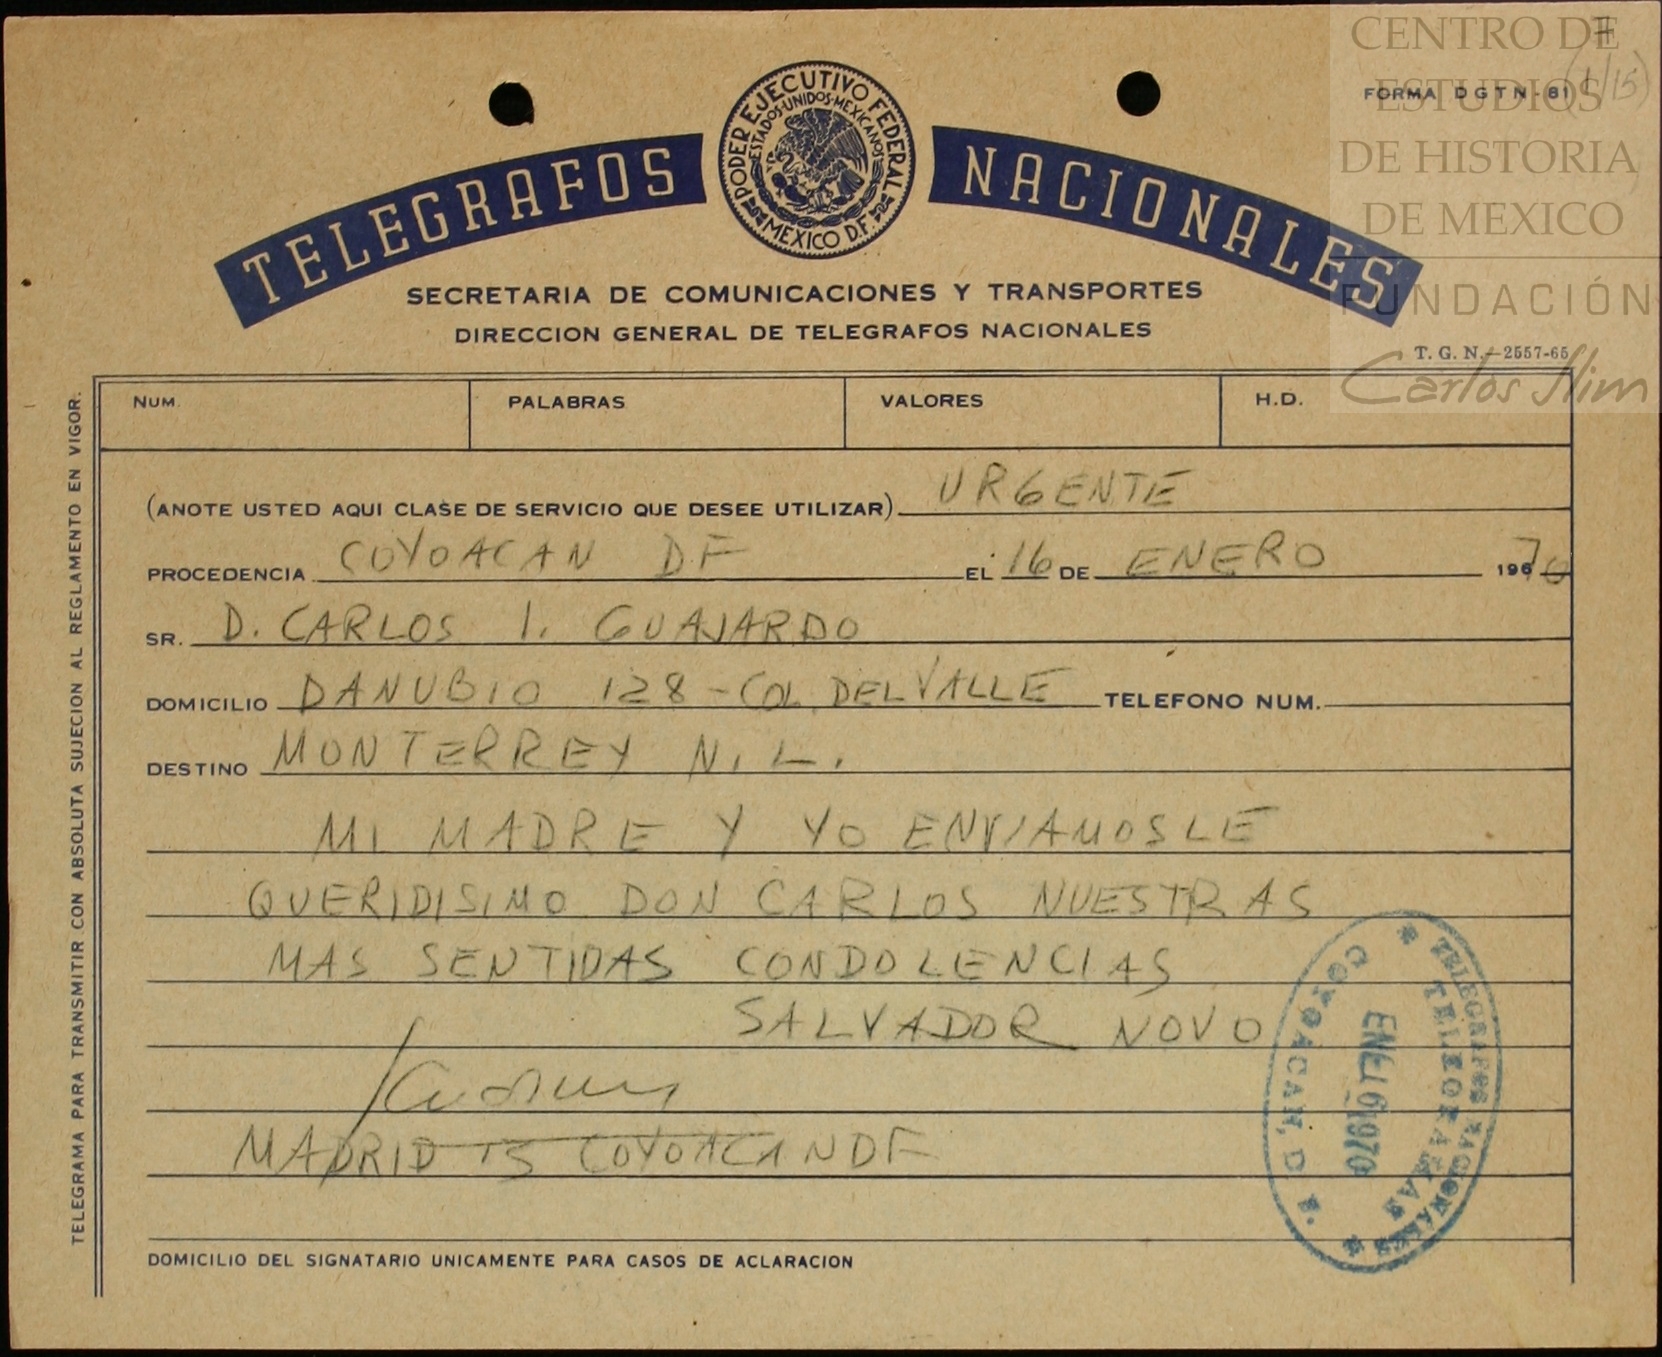 CENTRO DE
ESTUDIOS
DE HISTORIA
DE MEXICO
FUNDACIÓN
Carlos Slim
7
(1/15)
FORMA DGTN-81
TELEGRAFOS NACIONALES
PODER EJECUTIVO FEDERAL
ESTADOS·UNIDOS·MEXICANOS
MEXICO D.F.
SECRETARIA DE COMUNICACIONES Y TRANSPORTES
DIRECCION GENERAL DE TELEGRAFOS NACIONALES
T. G. N.—2557-65
NUM. PALABRAS VALORES H.D.
(ANOTE USTED AQUI CLASE DE SERVICIO QUE DESEE UTILIZAR) URGENTE
PROCEDENCIA COYOACAN DF EL 16 DE ENERO 19670
SR. D. CARLOS I. GUAJARDO
DOMICILIO DANUBIO 128 - COL. DEL VALLE TELEFONO NUM.
DESTINO MONTERREY N. L.
MI MADRE Y YO ENVIAMOSLE
QUERIDISIMO DON CARLOS NUESTRAS
MAS SENTIDAS CONDOLENCIAS
SALVADOR NOVO
MADRID 13 COYOACAN DF
DOMICILIO DEL SIGNATARIO UNICAMENTE PARA CASOS DE ACLARACION
TELEGRAMA PARA TRANSMITIR CON ABSOLUTA SUJECION AL REGLAMENTO EN VIGOR.
TELEGRAFOS NACIONALES
TELEGRAMAS
ENE 16 1970
COYOACAN, D. F.